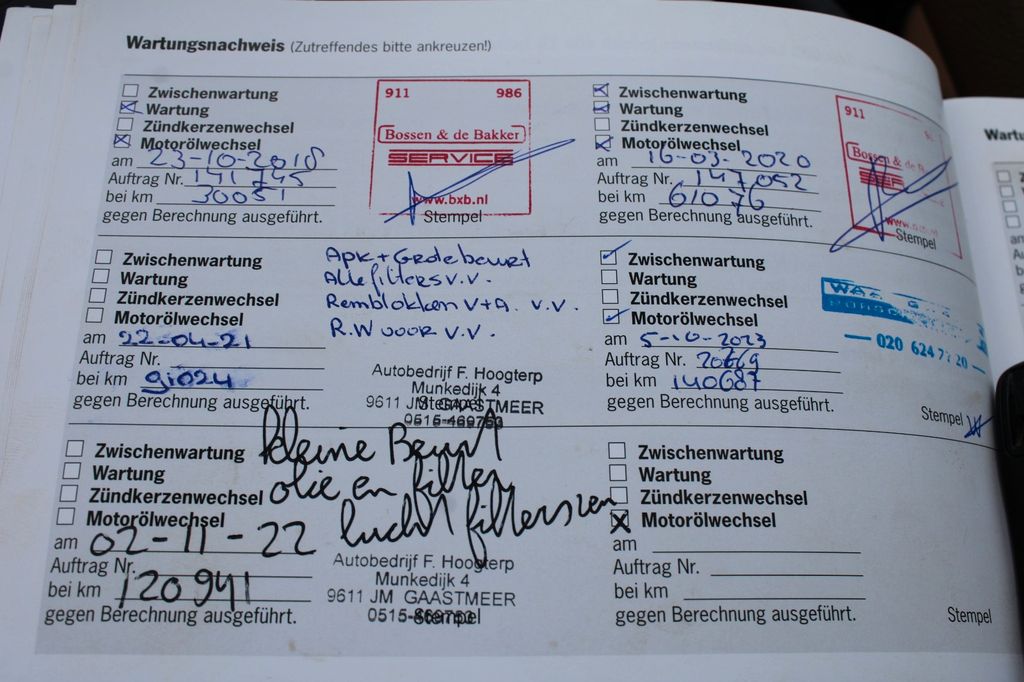 Wartungsnachweis (Zutreffendes bitte ankreuzen!)
Zwischenwartung
Wartung
Zündkerzenwechsel
Motorölwechsel
am 23-10-2018
Auftrag Nr. 141745
bei km 30051
gegen Berechnung ausgeführt.
911 986
Bossen & de Bakker
SERVICE
www.bxb.nl
Stempel
Zwischenwartung
Wartung
Zündkerzenwechsel
Motorölwechsel
am 16-03-2020
Auftrag Nr. 147052
bei km 61076
gegen Berechnung ausgeführt.
911
Bossen & de
Stempel
Zwischenwartung
Wartung
Zündkerzenwechsel
Motorölwechsel
am 22-04-21
Auftrag Nr.
bei km 91024
gegen Berechnung ausgeführt.
Apk + Grote beurt
Alle filters v.v.
Remblokken V+A. v.v.
R.W voor v.v.
Autobedrijf F. Hoogterp
Munkedijk 4
9611 JM GAASTMEER
0515-469753
Zwischenwartung
Wartung
Zündkerzenwechsel
Motorölwechsel
am 5-10-2023
Auftrag Nr. 20669
bei km 140687
gegen Berechnung ausgeführt.
020 624 7 20
Stempel
Zwischenwartung
Wartung
Zündkerzenwechsel
Motorölwechsel
am 02-11-22
Auftrag Nr.
bei km 120941
gegen Berechnung ausgeführt.
kleine Beurt
olie en filter
lucht filterszen
Autobedrijf F. Hoogterp
Munkedijk 4
9611 JM GAASTMEER
Stempel
Zwischenwartung
Wartung
Zündkerzenwechsel
Motorölwechsel
am
Auftrag Nr.
bei km
gegen Berechnung ausgeführt.
Stempel